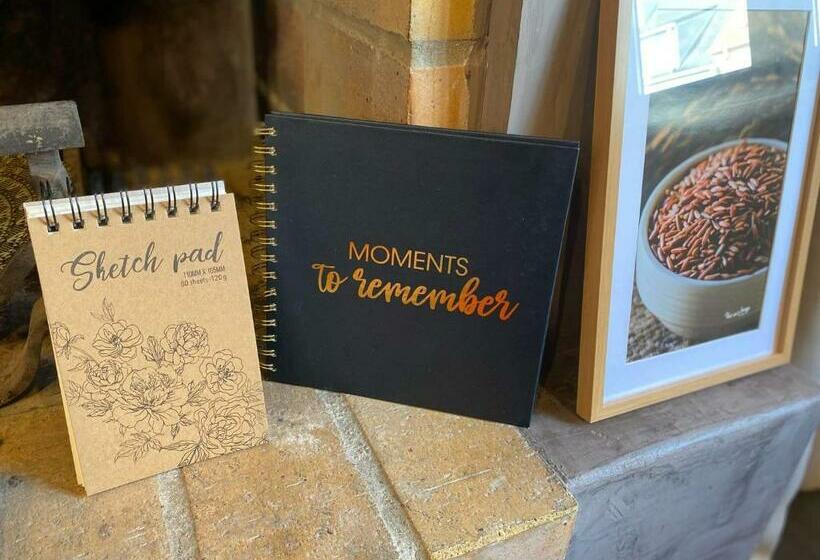 Sketch pad
110MM X 165MM
60 sheets·120g
MOMENTS
to remember